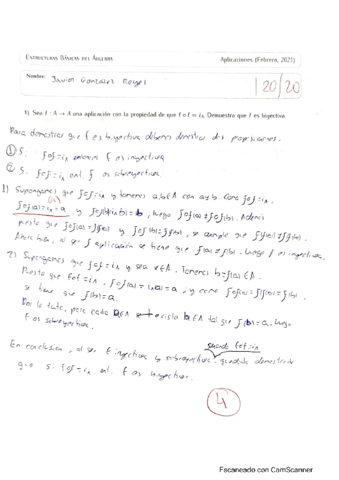 ESTRUCTURAS BÁSICAS DEL ÁLGEBRA Aplicaciones (Febrero, 2021)
Nombre: Javier Gonzalez Reyes
20/20
1) Sea f : A → A una aplicación con la propiedad de que f o f = i_A. Demuestra que f es biyectiva.
Para demostrar que f es biyectiva debemos demostrar dos proposiciones:
① Si fof=i_A entonces f es inyectiva
② Si fof=i_A ent. f es sobreyectiva.
1) Supongamos que fof=i_A y tenemos a,b∈A con a≠b. Como fof=i_A,
fof(a)=i_A=a y fof(b)=b, luego fof(a)≠fof(b). Además
puesto que fof(a)=f(f(a)) y fof(b)=f(f(b)), se cumple que f(f(a))≠f(f(b)).
Ahora bien, al ser f aplicación se tiene que f(a)≠f(b). Luego f es inyectiva.
2) Supongamos que fof=i_A y sea a∈A. Tenemos b=f(a)∈A.
Puesto que fof=i_A, fof(a)=i_A(a)=a, y como fof(a)=f(f(a))=f(b)
se tiene que f(b)=a.
Por lo tanto, para cada a∈A existe b∈A tal que f(b)=a, luego
f es sobreyectiva.
cuando fof=i_A
En conclusión, al ser f inyectiva y sobreyectiva, queda demostrado
que si fof=i_A ent. f es biyectiva.
4
Escaneado con CamScanner